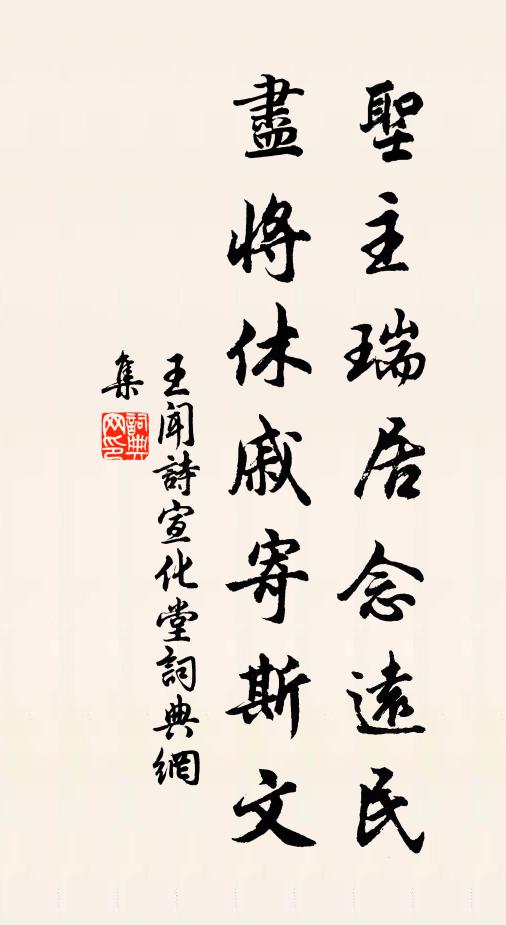 聖主瑞居念遠民
盡將休戚寄斯文
王聞詩宣化堂詞典網
集
詞典網印